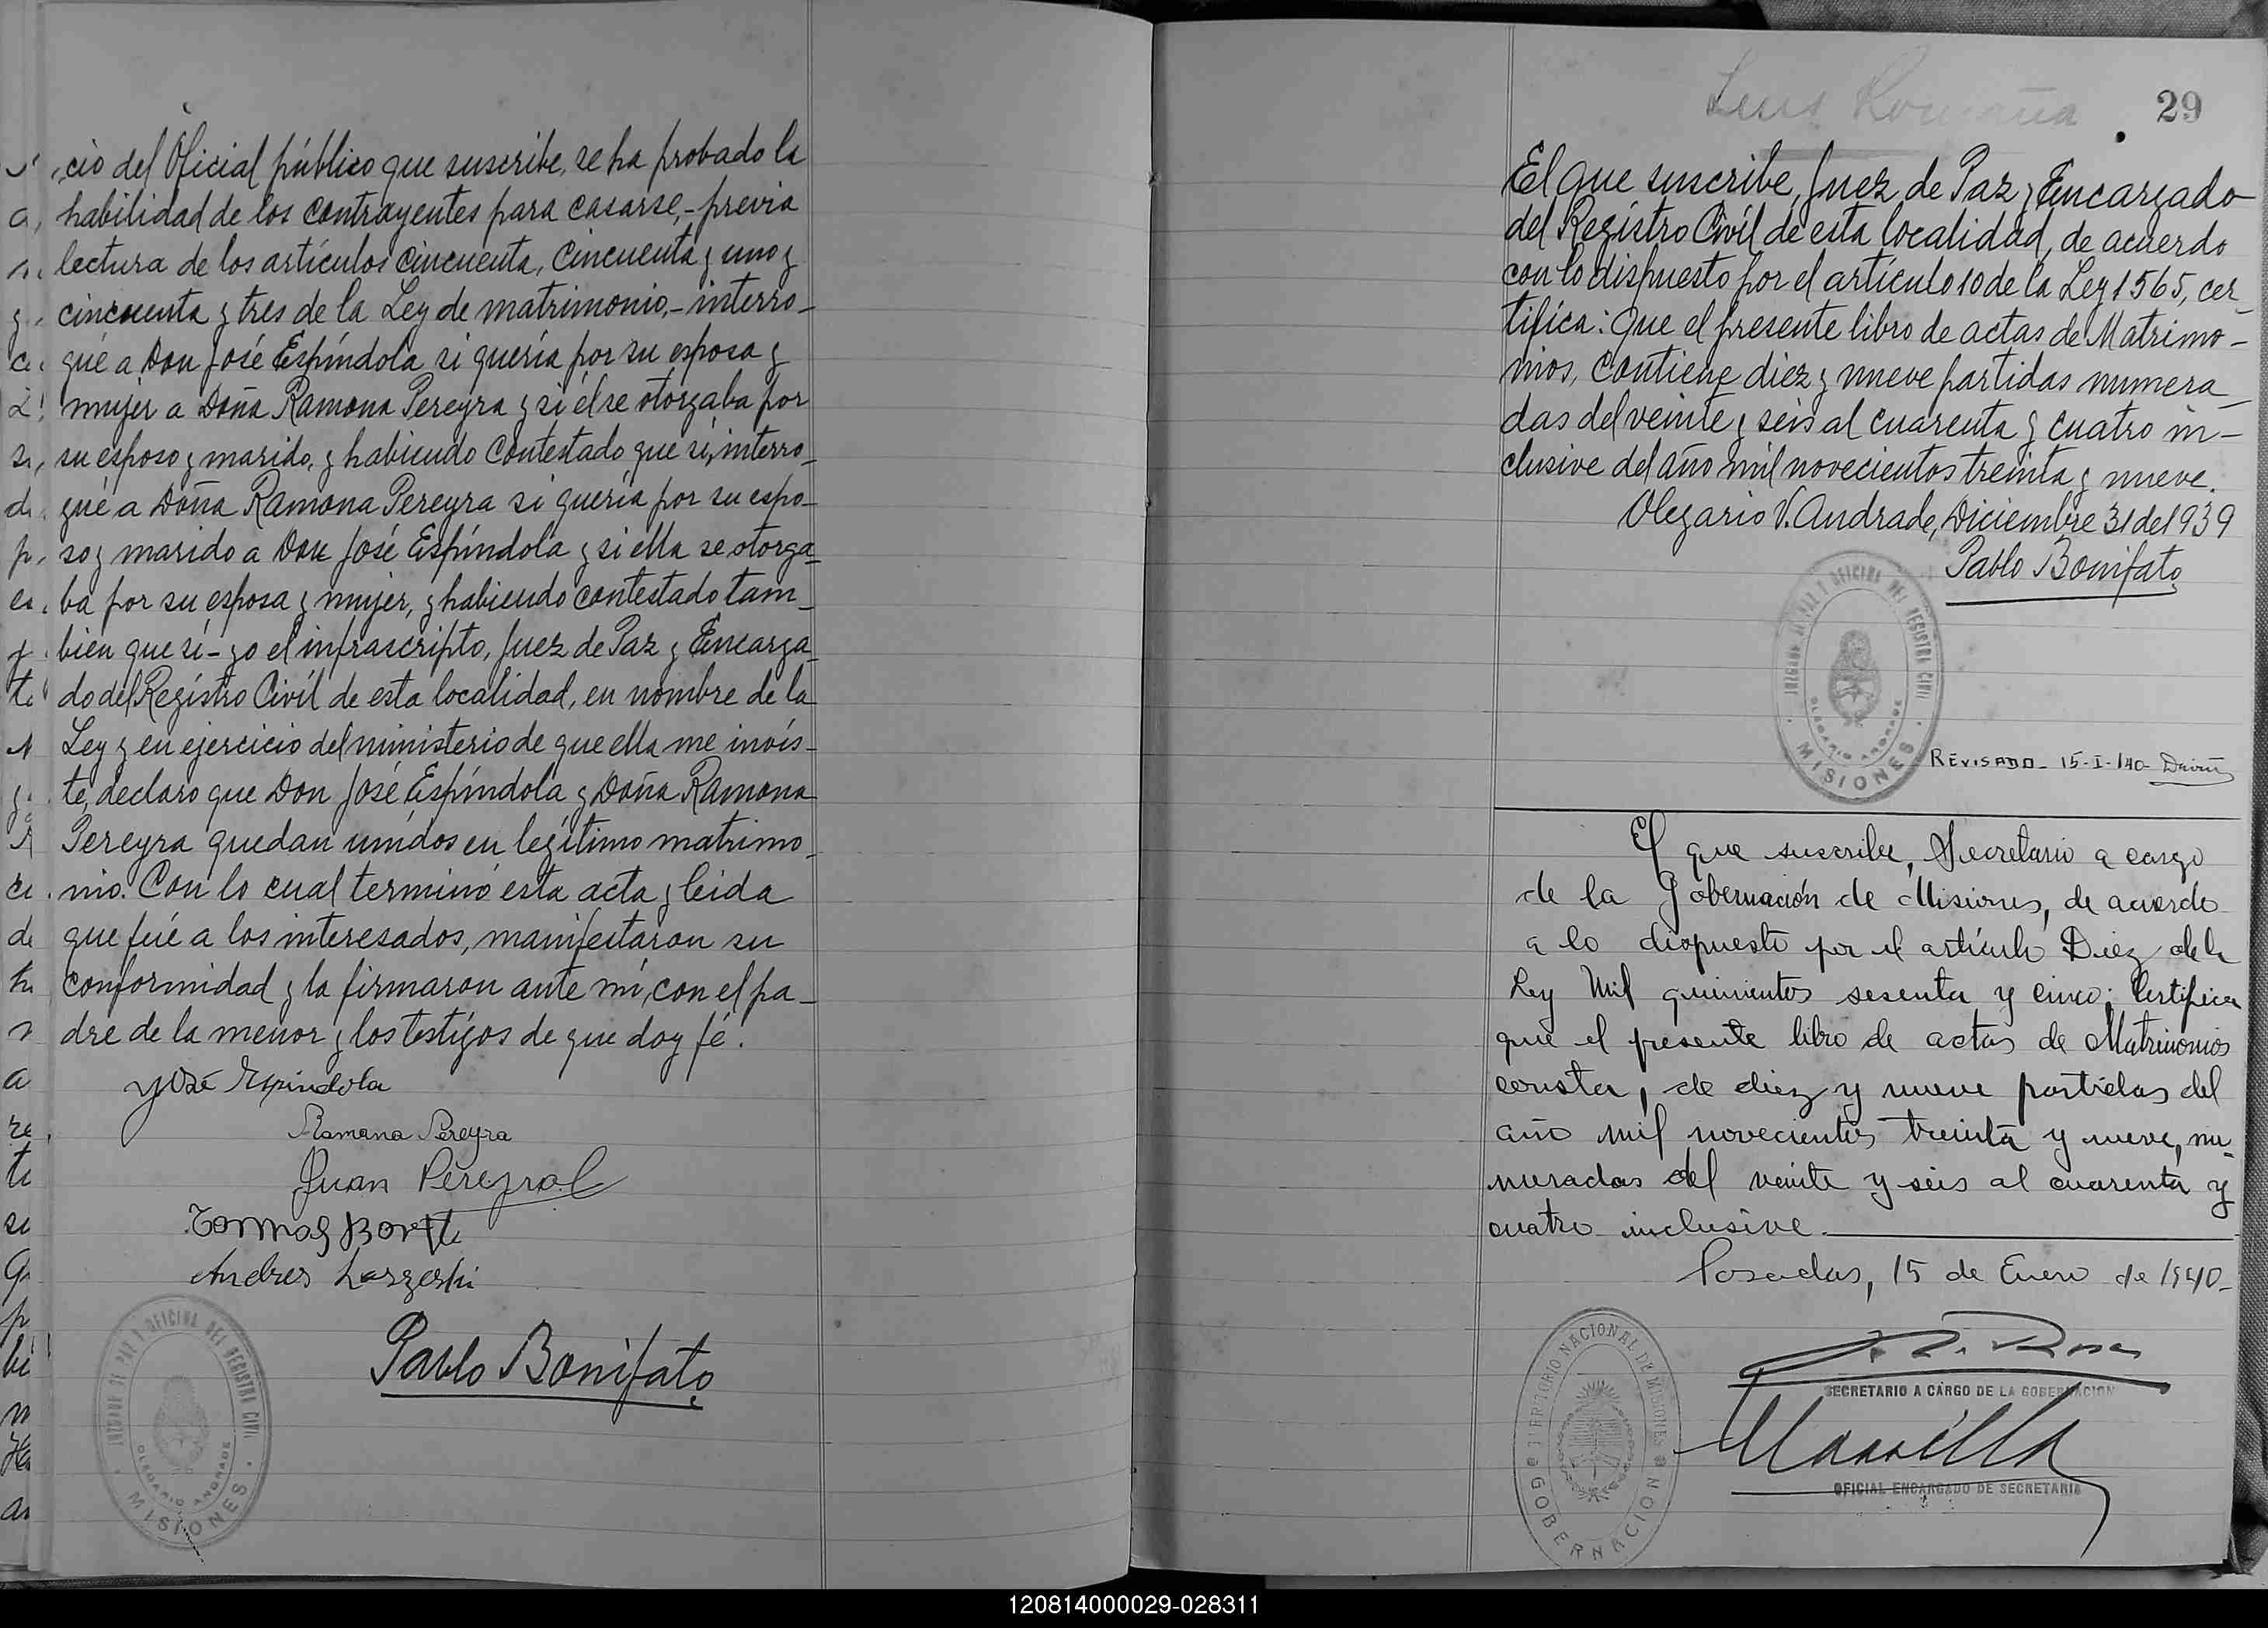 cio del Oficial público que suscribe, se ha probado la
habilidad de los contrayentes para casarse,- previa
lectura de los artículos cincuenta, cincuenta y uno y
cincuenta y tres de la Ley de matrimonio,- interro-
gué a Don José Espíndola si quería por su esposa y
mujer a Doña Ramona Pereyra y si él se otorgaba por
su esposo y marido, y habiendo contestado que si, interro-
gué a Doña Ramona Pereyra si quería por su espo-
so y marido a Don José Espíndola y si ella se otorga-
ba por su esposa y mujer, y habiendo contestado tam-
bien que si - yo el infrascripto, Juez de Paz y Encarga-
do del Registro Civil de esta localidad, en nombre de la
Ley y en ejercicio del ministerio de que ella me invis-
te, declaro que Don José Espíndola y Doña Ramona
Pereyra quedan unidos en legítimo matrimo-
nio. Con lo cual terminó esta acta y leida
que fué a los interesados, manifestaron su
conformidad y la firmaron ante mi, con el pa-
dre de la menor y los testigos de que doy fé.
José Espindola
Ramona Pereyra
Juan Pereyra
Andres
Pablo Bonifato
JUZGADO DE PAZ Y OFICINA DEL REGISTRO CIVIL
OLEGARIO ANDRADE
MISIONES
Luis Romaña
29
El que suscribe, Juez de Paz y Encargado
del Registro Civil de esta localidad, de acuerdo
con lo dispuesto por el artículo 10 de la Ley 1565, cer-
tifica: Que el presente libro de actas de Matrimo-
nios, contiene diez y nueve partidas numera-
das del veinte y seis al cuarenta y cuatro in-
clusive del año mil novecientos treinta y nueve.
Olegario V. Andrade, Diciembre 31 de 1939
Pablo Bonifato
JUZGADO DE PAZ Y OFICINA DEL REGISTRO CIVIL
OLEGARIO ANDRADE
MISIONES
REVISADO - 15-I-140-
El que suscribe, Secretario a cargo
de la Gobernación de Misiones, de acuerdo
a lo dispuesto por el artículo Diez de la
Ley Mil quinientos sesenta y cinco; Certifica
que el presente libro de actas de Matrimonios
consta, de diez y nueve partidas del
año mil novecientos treinta y nueve, nu-
meradas del veinte y seis al cuarenta y
cuatro inclusive.
Posadas, 15 de Enero de 1940-
SECRETARIO A CARGO DE LA GOBERNACION
Mansilla
OFICIAL ENCARGADO DE SECRETARIA
TERRITORIO NACIONAL DE MISIONES
GOBERNACION
120814000029-028311